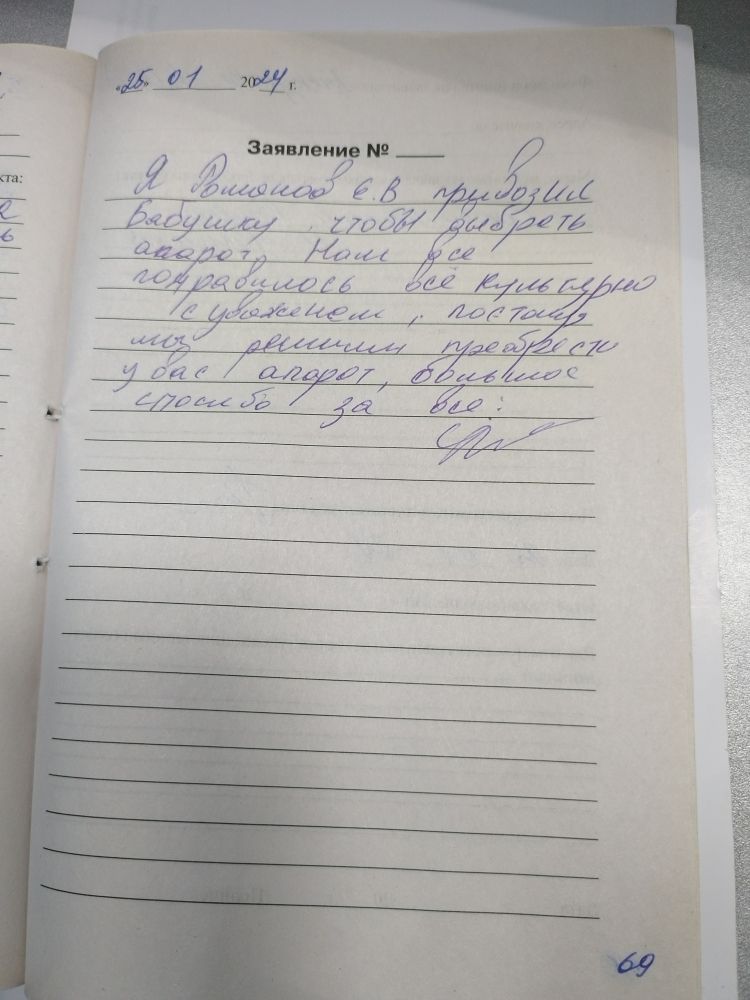 «25» 01 2024 г.
Заявление № ____
Я Романов Е.В привозил
Бабушку, чтобы выбрать
апарат, Нам все
понравилось всё культурно
с уважением, поэтому
мы решили преобрести
у вас апарат, большое
спосибо за все!
кта:
69